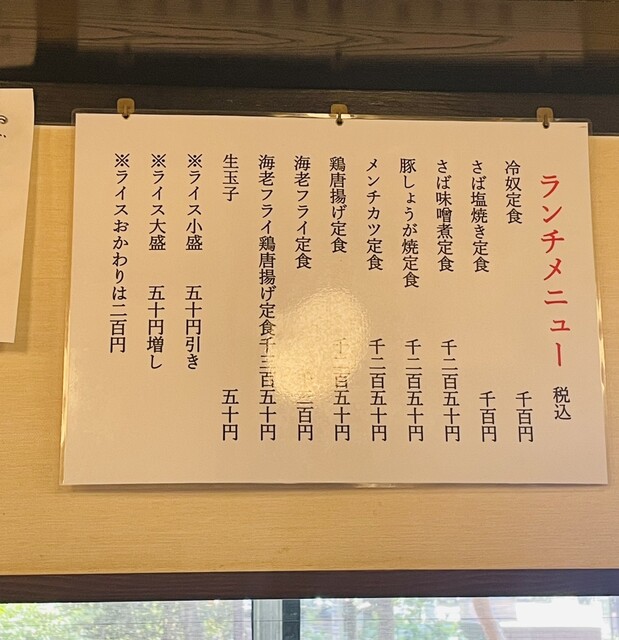 ランチメニュー 税込
冷奴定食 千百円
さば塩焼き定食 千百円
さば味噌煮定食 千二百五十円
豚しょうが焼定食 千二百五十円
メンチカツ定食 千二百五十円
鶏唐揚げ定食 千二百五十円
海老フライ定食 千三百円
海老フライ鶏唐揚げ定食千三百五十円
生玉子 五十円
※ライス小盛 五十円引き
※ライス大盛 五十円増し
※ライスおかわりは二百円